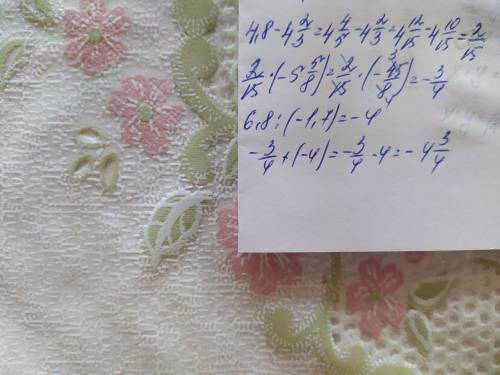 4,8 - 4 2/3 = 4 4/5 - 4 2/3 = 4 12/15 - 4 10/15 = 2/15
2/15 · (-5 5/8) = 2/15 · (-45/8) = -3/4
6,8 : (-1,7) = -4
-3/4 + (-4) = -3/4 - 4 = -4 3/4